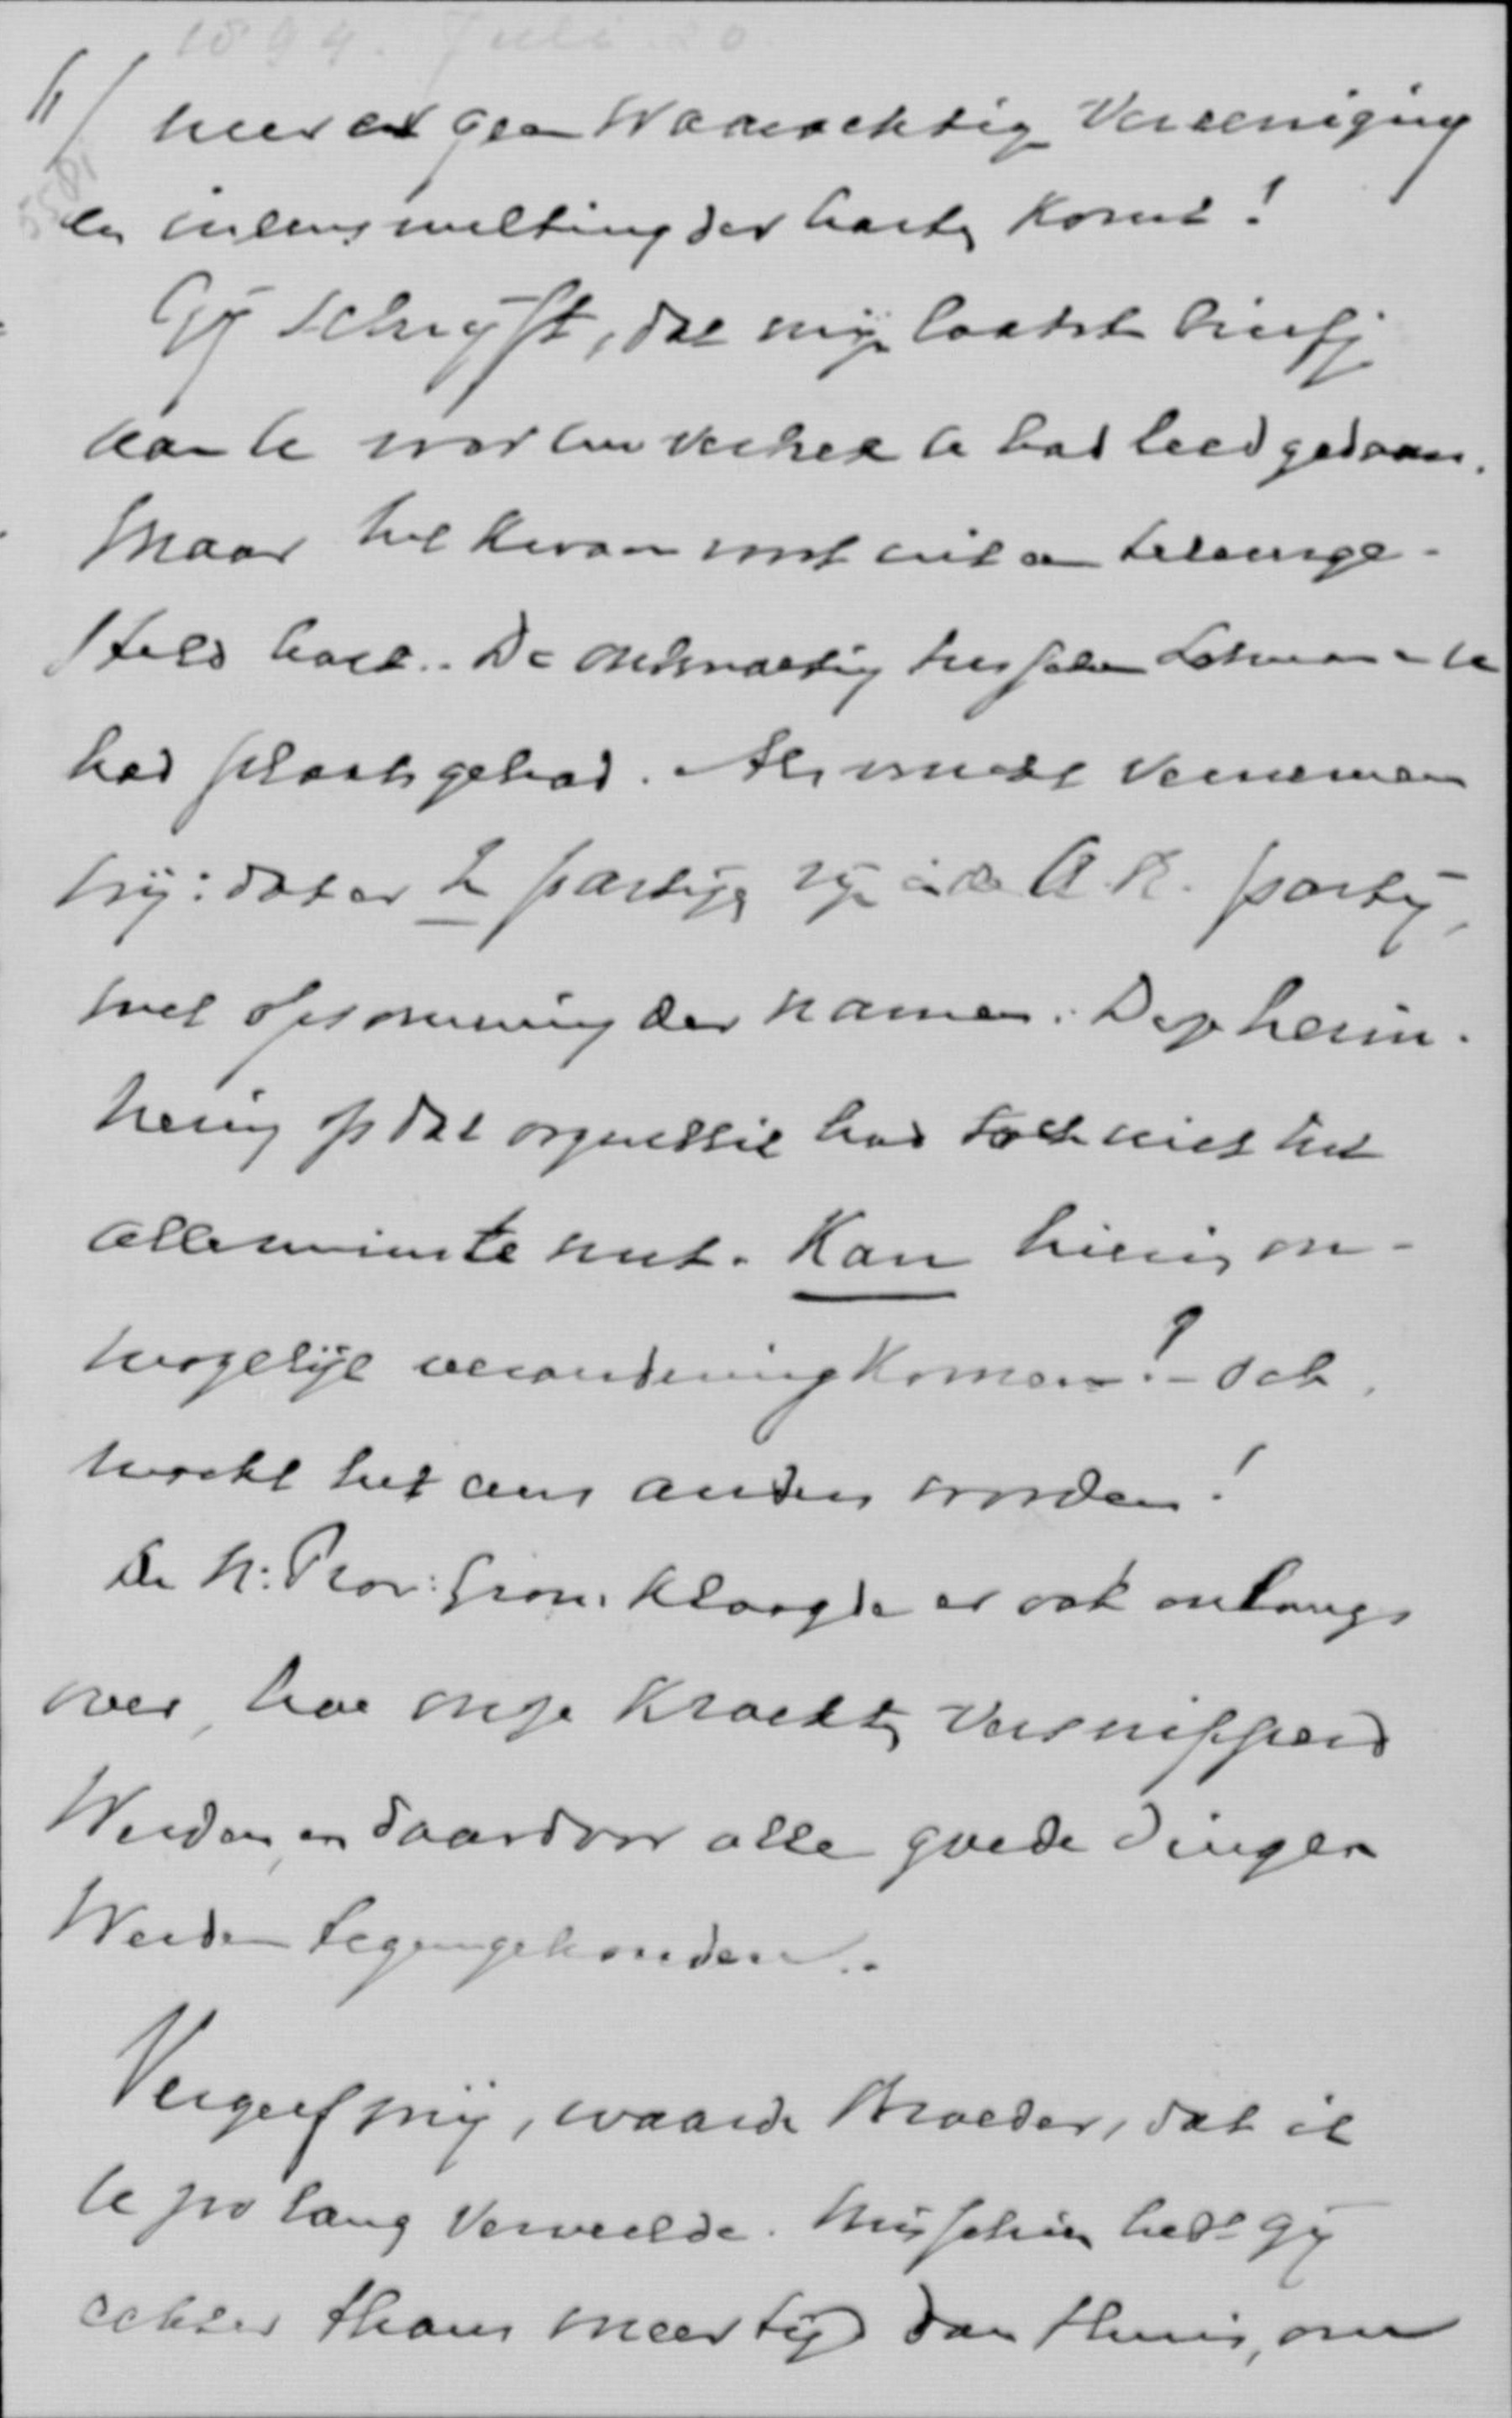 1894. Juli 20
4/ meer er geen Waarachtige Vereeniging
en ineensmelting der harten komt!
Gij schrijft, dat mijn laatste briefje
aan U vóór Uw vertrek U had leed gedaan.
Maar het kwam voort uit een teleurge-
steld hart.. De ontmoeting tusschen Lohman en U
had plaats gehad. Als vrucht vernemen
wij: dat er 2 partijen zijn in de A.R. partij,
met opsomming der namen. Deze herin-
nering op dat oogenblik had toch niet het
allerminste nut. Kan hierin on-
mogelijk verandering komen? – Och,
mocht het eens anders worden!
De N: Prov: Gron. klaagde er ook onlangs
over, hoe onze krachten versnipperd
werden, en daardoor alle goede dingen
werden tegengehouden..
Vergeef mij, waarde Broeder, dat ik
U zoo lang verveelde. Misschien hebt gij
echter thans meer tijd dan thuis, om